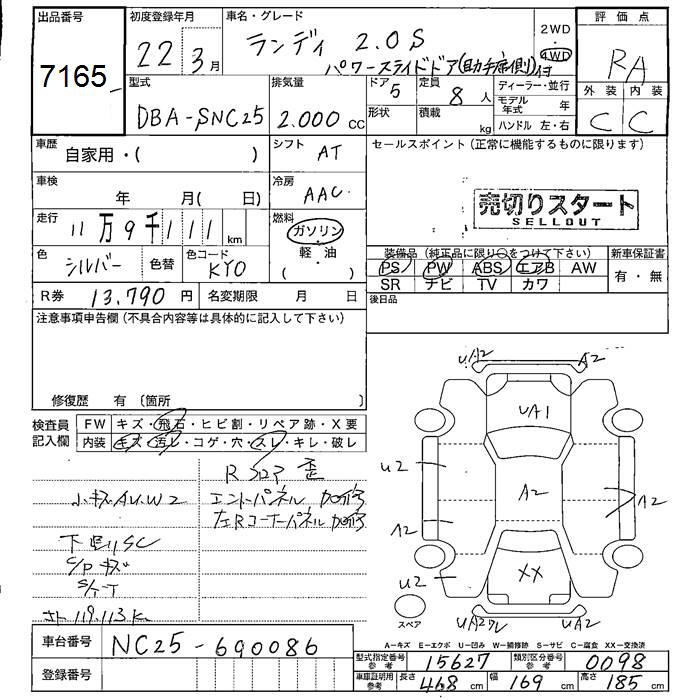 出品番号
7165
初度登録年月
22年 3月
車名・グレード
ランディ 2.0S
パワースライドドア(助手席側)付
2WD
・
4WD
評価点
RA
外装 内装
C C
型式
DBA-SNC25
排気量
2.000 CC
ドア 5
形状
定員 8 人
積載 kg
ディーラー・並行
モデル年式 年
ハンドル 左・右
車歴
自家用・( )
シフト AT
車検
年 月( 日)
冷房 AAC
走行
11万9千111 km
燃料
ガソリン
・
軽油
色 シルバー
色替
色コード KY0
R券 13,790 円
名変期限 月 日
セールスポイント(正常に機能するものに限ります)
売切りスタート
SELLOUT
装備品(純正品に限り○をつけて下さい)
PS PW ABS エアB AW
SR ナビ TV カワ
新車保証書
有・無
後日品
注意事項申告欄(不具合内容等は具体的に記入して下さい)
修復歴 有 〔箇所 〕
検査員記入欄
FW キズ・飛石・ヒビ割・リペア跡・X要
内装 キズ・汚レ・コゲ・穴・スレ・キレ・破レ
Rフロア 歪
小キズAU.W2
エンドパネル 加修
左Rコーナーパネル 加修
下回りSC
C/Pキズ
119.113K
UA2 A2
UA1
U2
A2
A2
A2
U2
XX
UA2ワレ UA2
スペア
A-キズ E-エクボ U-凹み W-補修跡 S-サビ C-腐食 XX-交換済
車台番号
NC25-690086
登録番号
型式指定番号 参考 15627
類別区分番号 参考 0098
車庫証明用 参考 長さ 468 cm 幅 169 cm 高さ 185 cm